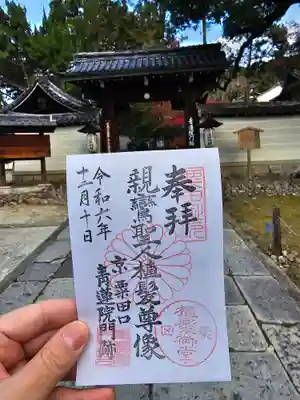 奉拝
親鸞聖人植髪尊像
京 粟田口
青蓮院門跡
令和六年
十二月十日
植髪尊堂